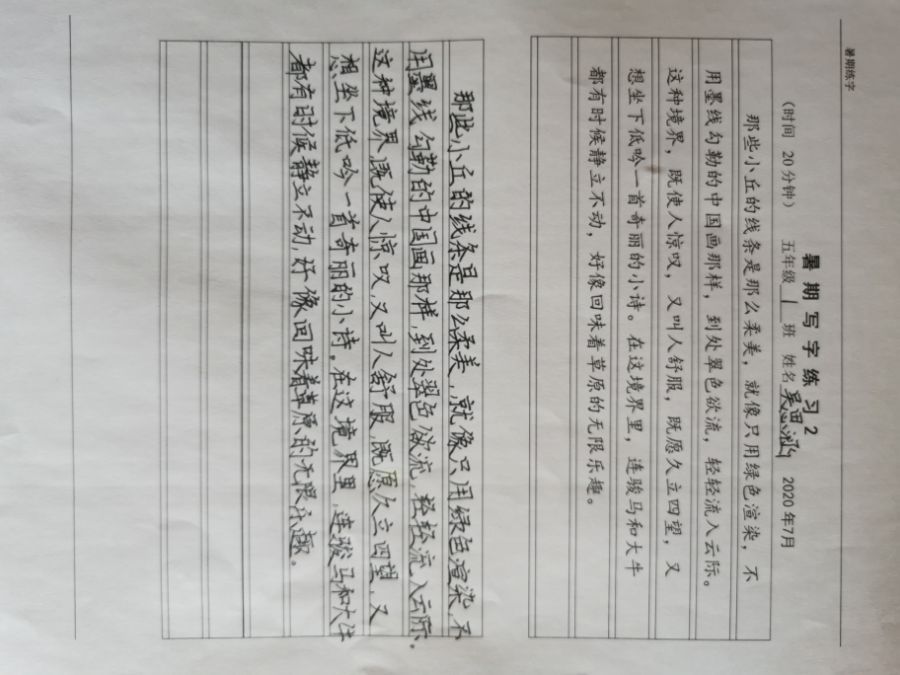 暑期练字
暑期写字练习2
(时间 20分钟) 五年级 1 班 姓名 2020年7月
那些小丘的线条是那么柔美,就像只用绿色渲染,不
用墨线勾勒的中国画那样,到处翠色欲流,轻轻流入云际。
这种境界,既使人惊叹,又叫人舒服,既愿久立四望,又
想坐下低吟一首奇丽的小诗。在这境界里,连骏马和大牛
都有时候静立不动,好像回味着草原的无限乐趣。
那些小丘的线条是那么柔美,就像只用绿色渲染,不
用墨线勾勒的中国画那样,到处翠色欲流,轻轻流入云际。
这种境界,既使人惊叹,又叫人舒服,既愿久立四望,又
想坐下低吟一首奇丽的小诗。在这境界里,连骏马和大牛
都有时候静立不动,好像回味着草原的无限乐趣。